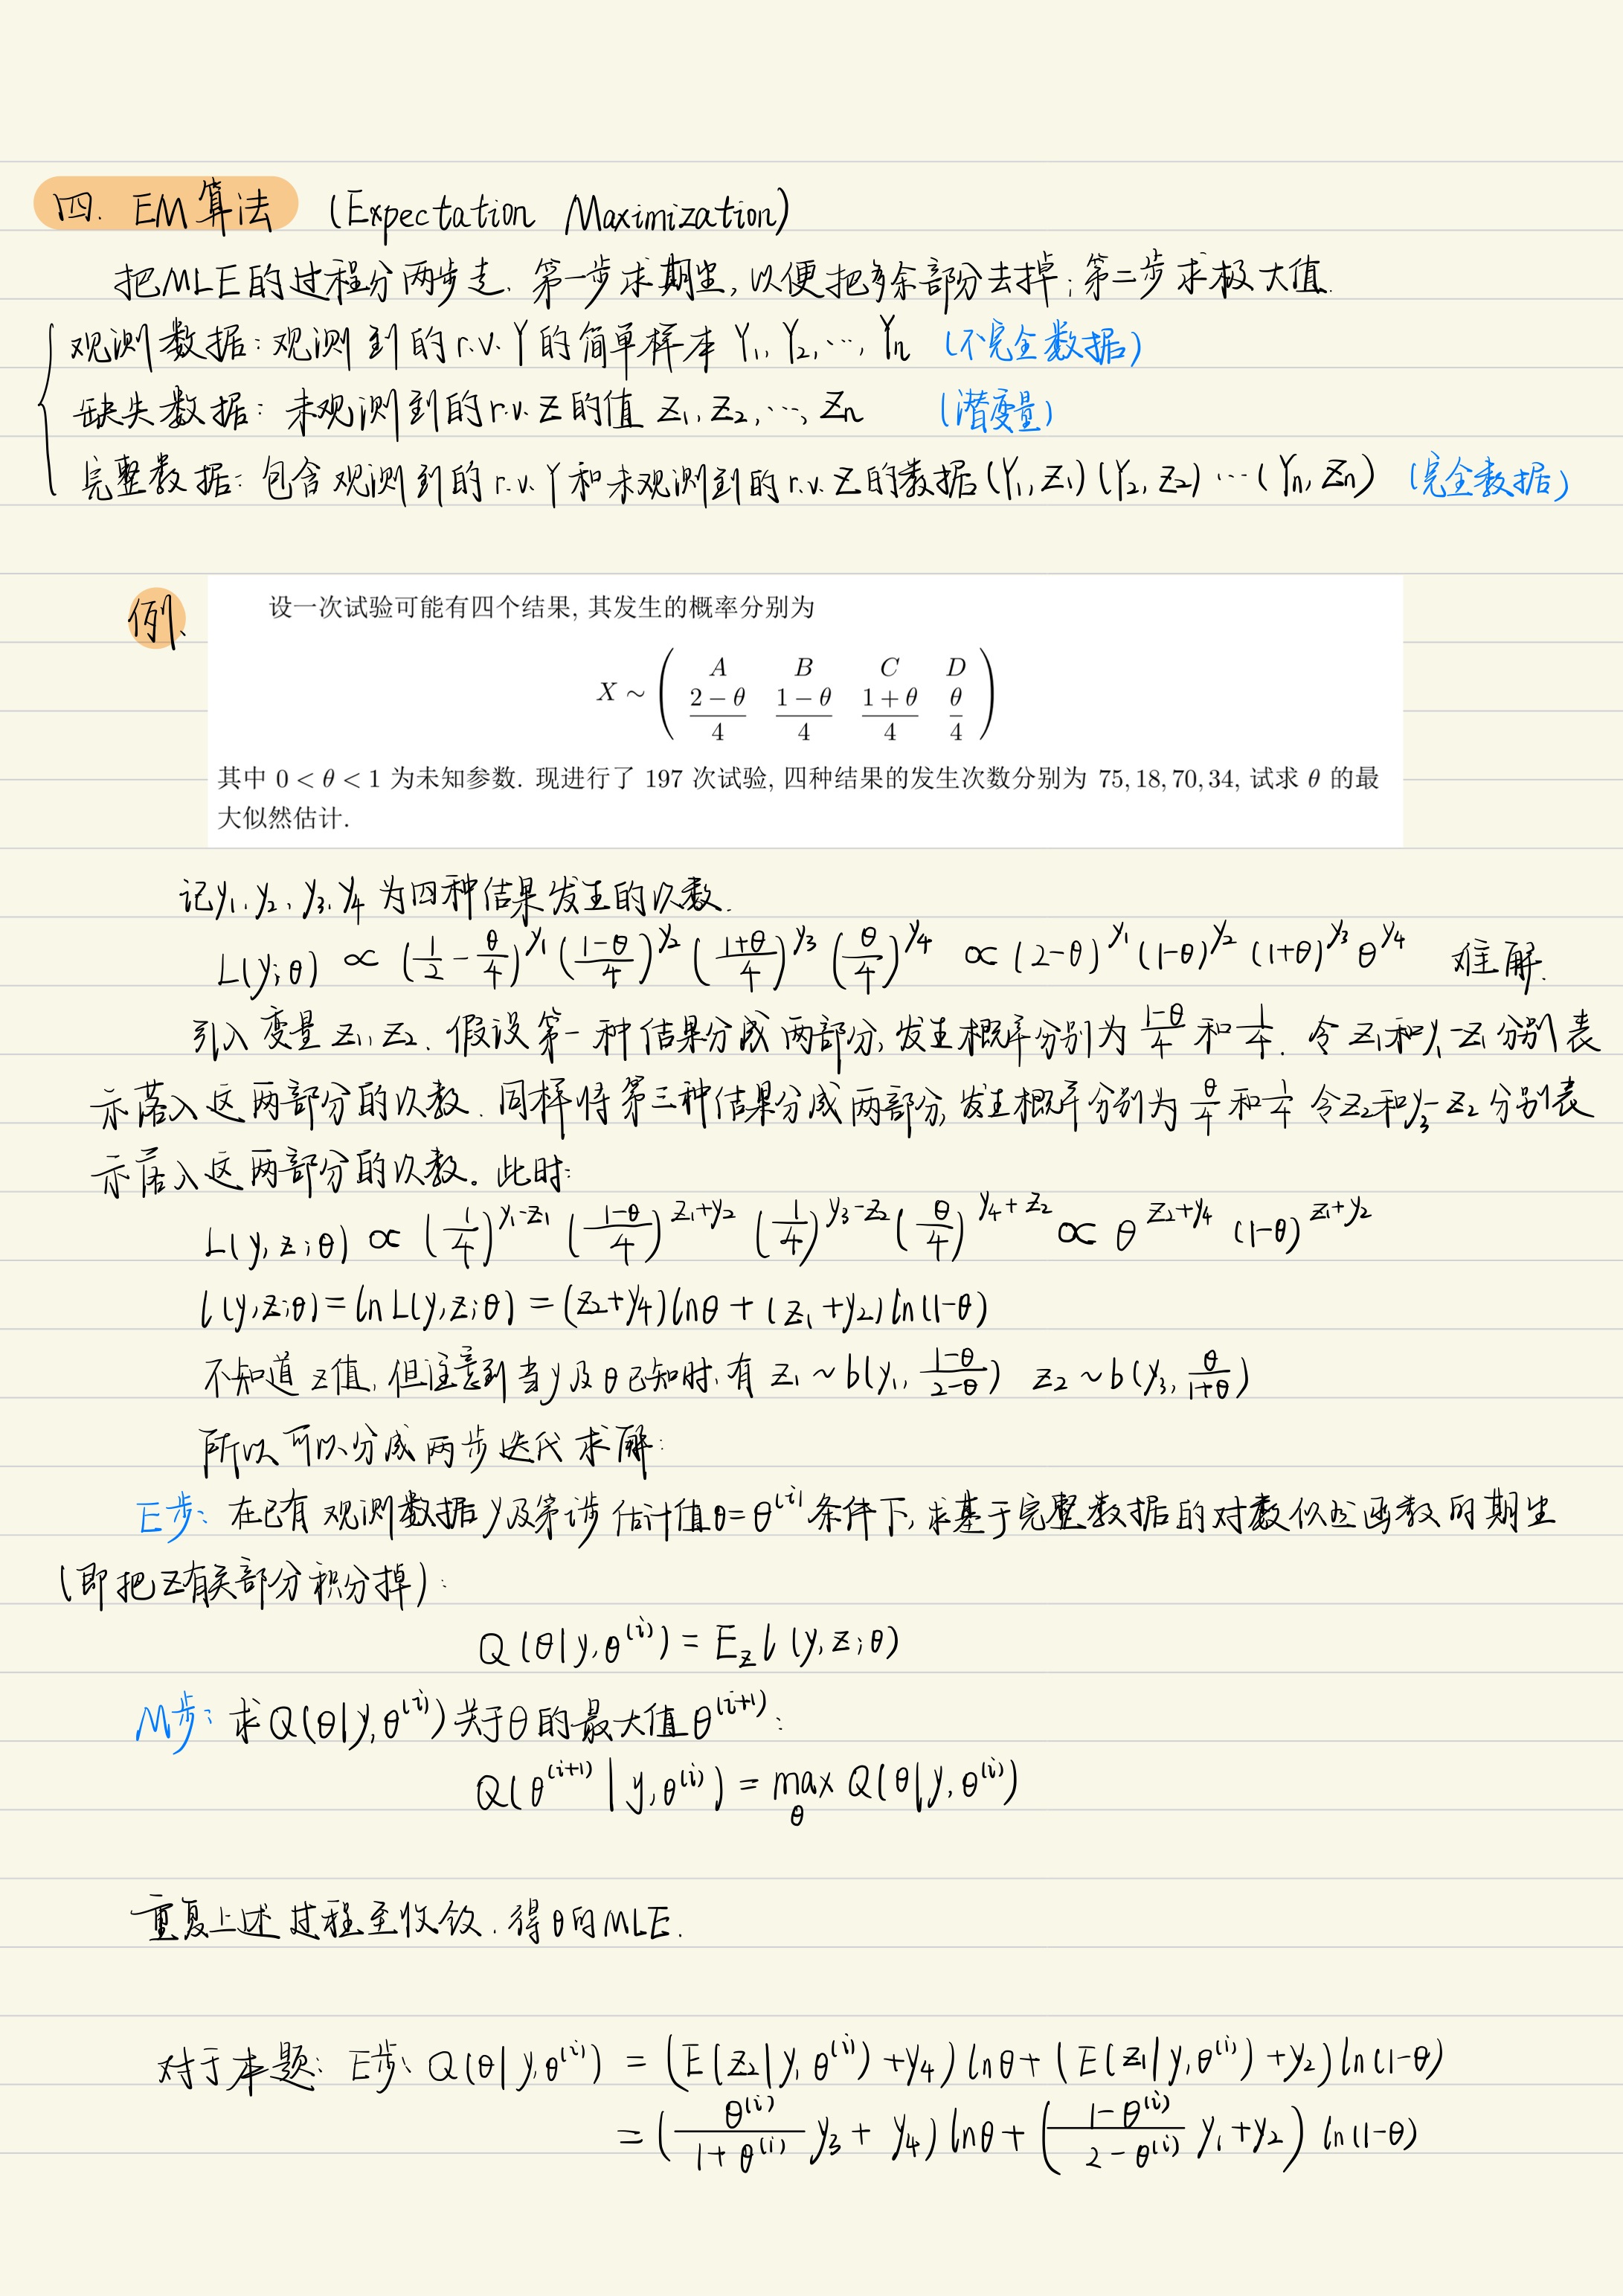 四. EM算法 (Expectation Maximization)
把MLE的过程分两步走. 第一步求期望, 以便把多余部分去掉; 第二步求极大值.
观测数据: 观测到的r.v. Y的简单样本 Y₁, Y₂, ⋯, Yₙ (不完全数据)
缺失数据: 未观测到的r.v. Z的值 Z₁, Z₂, ⋯, Zₙ (潜变量)
完整数据: 包含观测到的r.v. Y和未观测到的r.v. Z的数据(Y₁, Z₁) (Y₂, Z₂) ⋯ (Yₙ, Zₙ) (完全数据)
例、
设一次试验可能有四个结果, 其发生的概率分别为
X ∼ ( A B C D
(2 − θ)/4 (1 − θ)/4 (1 + θ)/4 θ/4 )
其中 0 < θ < 1 为未知参数. 现进行了 197 次试验, 四种结果的发生次数分别为 75, 18, 70, 34, 试求 θ 的最
大似然估计.
记y₁, y₂, y₃, y₄ 为四种结果发生的次数.
L(y;θ) ∝ (1/2 − θ/4)^{y₁} ((1−θ)/4)^{y₂} ((1+θ)/4)^{y₃} (θ/4)^{y₄} ∝ (2−θ)^{y₁} (1−θ)^{y₂} (1+θ)^{y₃} θ^{y₄} 难解.
引入变量 z₁, z₂. 假设第一种结果分成两部分, 发生概率分别为 (1−θ)/4 和 1/4. 令 z₁和y₁−z₁ 分别表
示落入这两部分的次数. 同样将第三种结果分成两部分, 发生概率分别为 θ/4 和 1/4 令z₂和y₃−z₂ 分别表
示落入这两部分的次数。此时:
L(y, z;θ) ∝ (1/4)^{y₁−z₁} ((1−θ)/4)^{z₁+y₂} (1/4)^{y₃−z₂} (θ/4)^{y₄+z₂} ∝ θ^{z₂+y₄} (1−θ)^{z₁+y₂}
l(y,z;θ) = ln L(y,z;θ) = (z₂+y₄) lnθ + (z₁+y₂) ln(1−θ)
不知道 z值, 但注意到当y及θ已知时, 有 z₁ ~ b(y₁, (1−θ)/(2−θ)) z₂ ~ b(y₃, θ/(1+θ))
所以可以分成两步迭代求解:
E步: 在已有观测数据y及第i步估计值θ=θ^{(i)}条件下, 求基于完整数据的对数似然函数的期望
(即把Z有关部分积分掉):
Q(θ|y,θ^{(i)}) = E_z l(y,z;θ)
M步: 求Q(θ|y,θ^{(i)})关于θ的最大值θ^{(i+1)}:
Q(θ^{(i+1)} | y,θ^{(i)}) = max_θ Q(θ|y,θ^{(i)})
重复上述过程至收敛. 得θ的MLE.
对于本题: E步: Q(θ|y,θ^{(i)}) = (E(z₂|y,θ^{(i)})+y₄) lnθ + (E(z₁|y,θ^{(i)})+y₂) ln(1−θ)
= (θ^{(i)}/(1+θ^{(i)}) y₃ + y₄) lnθ + ((1−θ^{(i)})/(2−θ^{(i)}) y₁ + y₂) ln(1−θ)